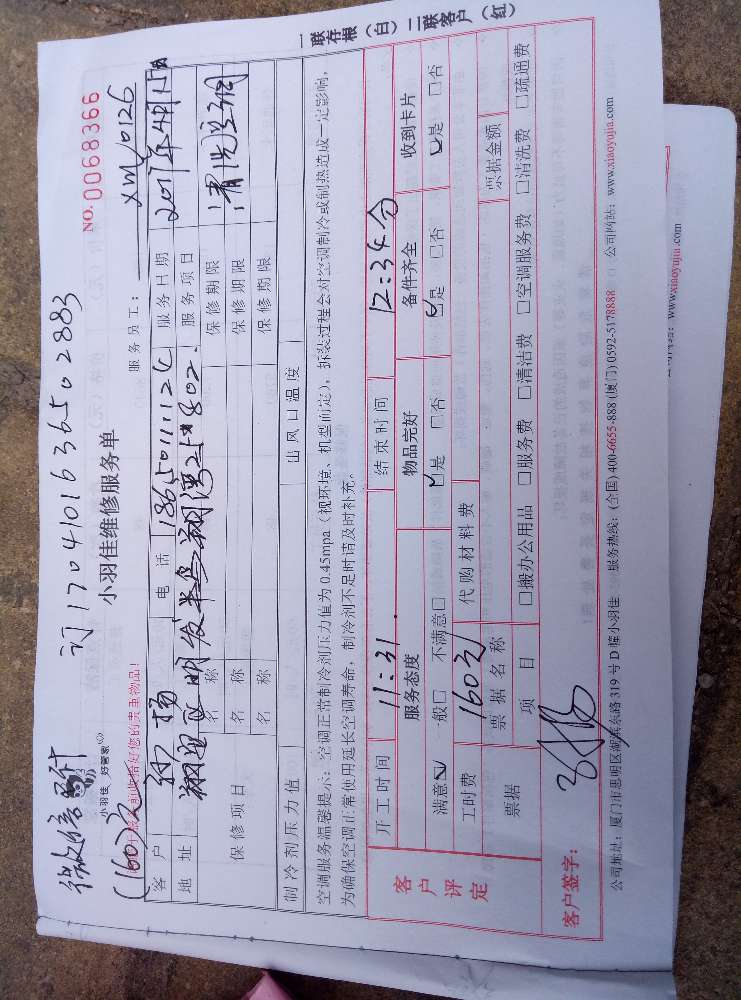 订1704101636502883
微信
(160元)
NO. 0068366
小羽佳 好管家
小羽佳维修服务单
服务员工: xm10126
客户 孙杨 电话 服务日期 2017年4月15日
地址 服务项目 清洗空调
保修项目 名称 保修期限
名称 保修期限
名称 保修期限
制冷剂压力值 出风口温度
空调服务温馨提示：空调正常制冷剂压力值为 0.45mpa（视环境、机型而定），拆装过程会对空调制冷或制热造成一定影响，
为确保空调正常使用延长空调寿命，制冷剂不足时请及时补充。
客户评定
开工时间 11:31 结束时间 12:34分
服务态度 物品完好 备件齐全 收到卡片
满意☑ 一般□ 不满意□ ☑是 □否 ☑是 □否 ☑是 □否
工时费 160元 代购材料费
票据 票据名称 票据金额
项目 □搬办公用品 □服务费 □清洁费 □空调服务费 □清洗费 □疏通费
客户签字：
公司地址：厦门市思明区湖滨东路 319 号 D 幢小羽佳 服务热线：(全国) 400-6655-888 (厦门) 0592-5178888 公司网站：www.xiaoyujia.com
一联存根（白）二联客户（红）
www.xiaoyujia.com